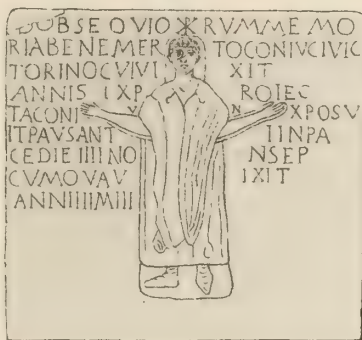 OBSEQVIO RVMMEMO
RIABENEMER TOCONIVCIVIC
TORINOCVIVI XIT
ANNIS IXP ROIEC
TACONI V N XPOSV
ITPAVSANT IINPA
CEDIEIIIINO NSEP
CVMQVAV IXIT
ANNIIIIMIII